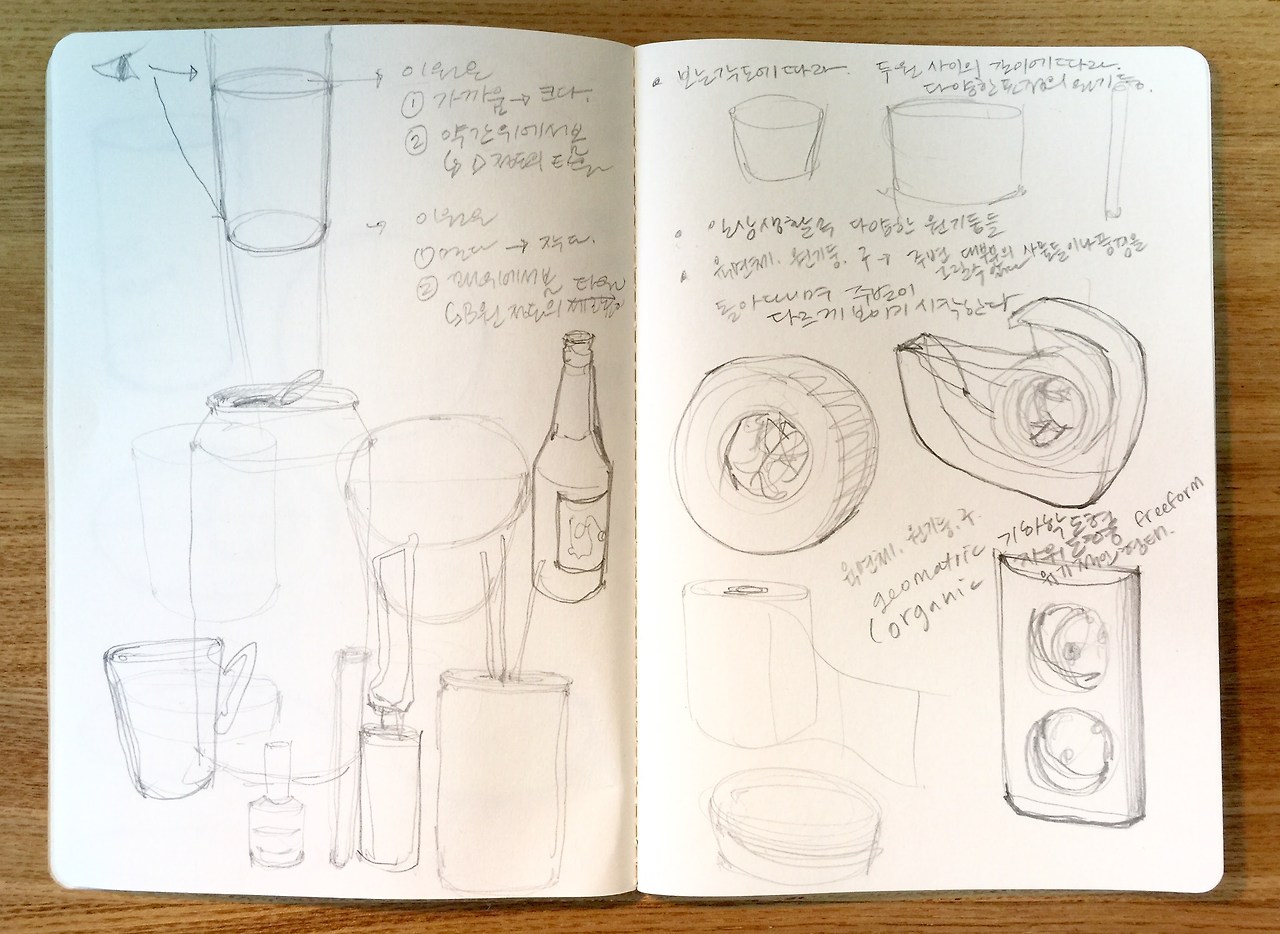 이 원은
① 가까움 → 크다.
② 약간 위에서 봄
↳ D 정도의 타원
이 원은
① 멀다 → 작다.
② 위에서 본 타원
↳ B원 정도의
• 보는 각도에 따라. 두 원 사이의 길이에 따라.
다양한 표정의 원기둥.
• 일상생활속 다양한 원기둥들
• 육면체. 원기둥. 구 → 주변 대부분의 사물들이나 풍경을
그릴 수 있다
돌아다니며 주변이
다르게 보이기 시작한다
육면체. 원기둥. 구.
geomatric 기하학 도형
(organic freeform
유기적인 형태.